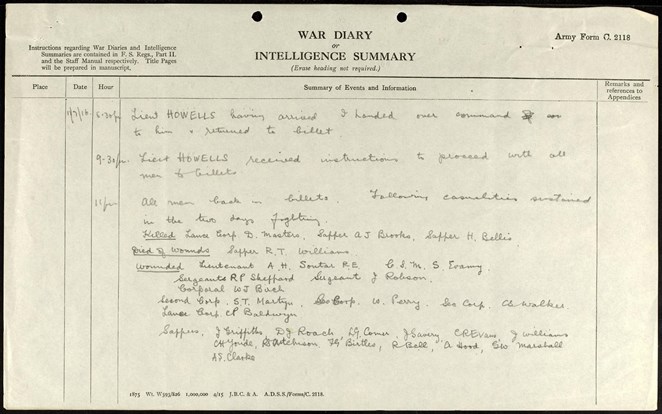 WAR DIARY
or
INTELLIGENCE SUMMARY
(Erase heading not required.)
Army Form C. 2118
Instructions regarding War Diaries and Intelligence
Summaries are contained in F. S. Regs., Part II.
and the Staff Manual respectively. Title Pages
will be prepared in manuscript.
Place Date Hour Summary of Events and Information Remarks and references to Appendices
1/7/16 Lieut HOWELLS having arrived I handed over command
to him & returned to billet
9-30pm Lieut HOWELLS received instructions to proceed with all
men to billets
11pm All men back in billets. Following casualities sustained
in the two days fighting.
Killed Lance Corp D. Masters, Sapper A J Brooks, Sapper H. Bellis
Died of Wounds Sapper R. T. Williams
Wounded Lieutenant A. H. Soutar R.E. C.S.M. S. Evamy.
Sergeants R P Sheppard Sergeant J Robson.
Corporal W J Birch
Second Corp. S.T. Martyn, Sec Corp. W. Perry. Sec Corp. Walker
Lance Corp C P Baldwyn
Sappers, J Griffiths, D J Roach, Comer, J Savery C R Evans, J Williams
Hutchison, Birtles, R Bell, A Hood, Marshall
A.S. Clarke
1875 Wt. W593/826 1,000,000 4/15 J.B.C. & A. A.D.S.S./Forms/C. 2118.